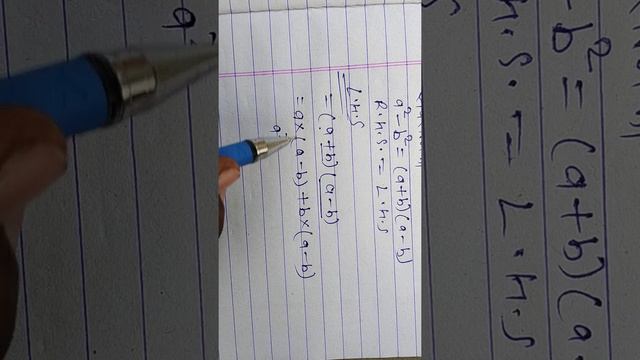 a² - b² = (a+b)(a-b)
R.H.S. = L.H.S
L.H.S
= (a+b)(a-b)
= a×(a-b)+b×(a-b)
a²